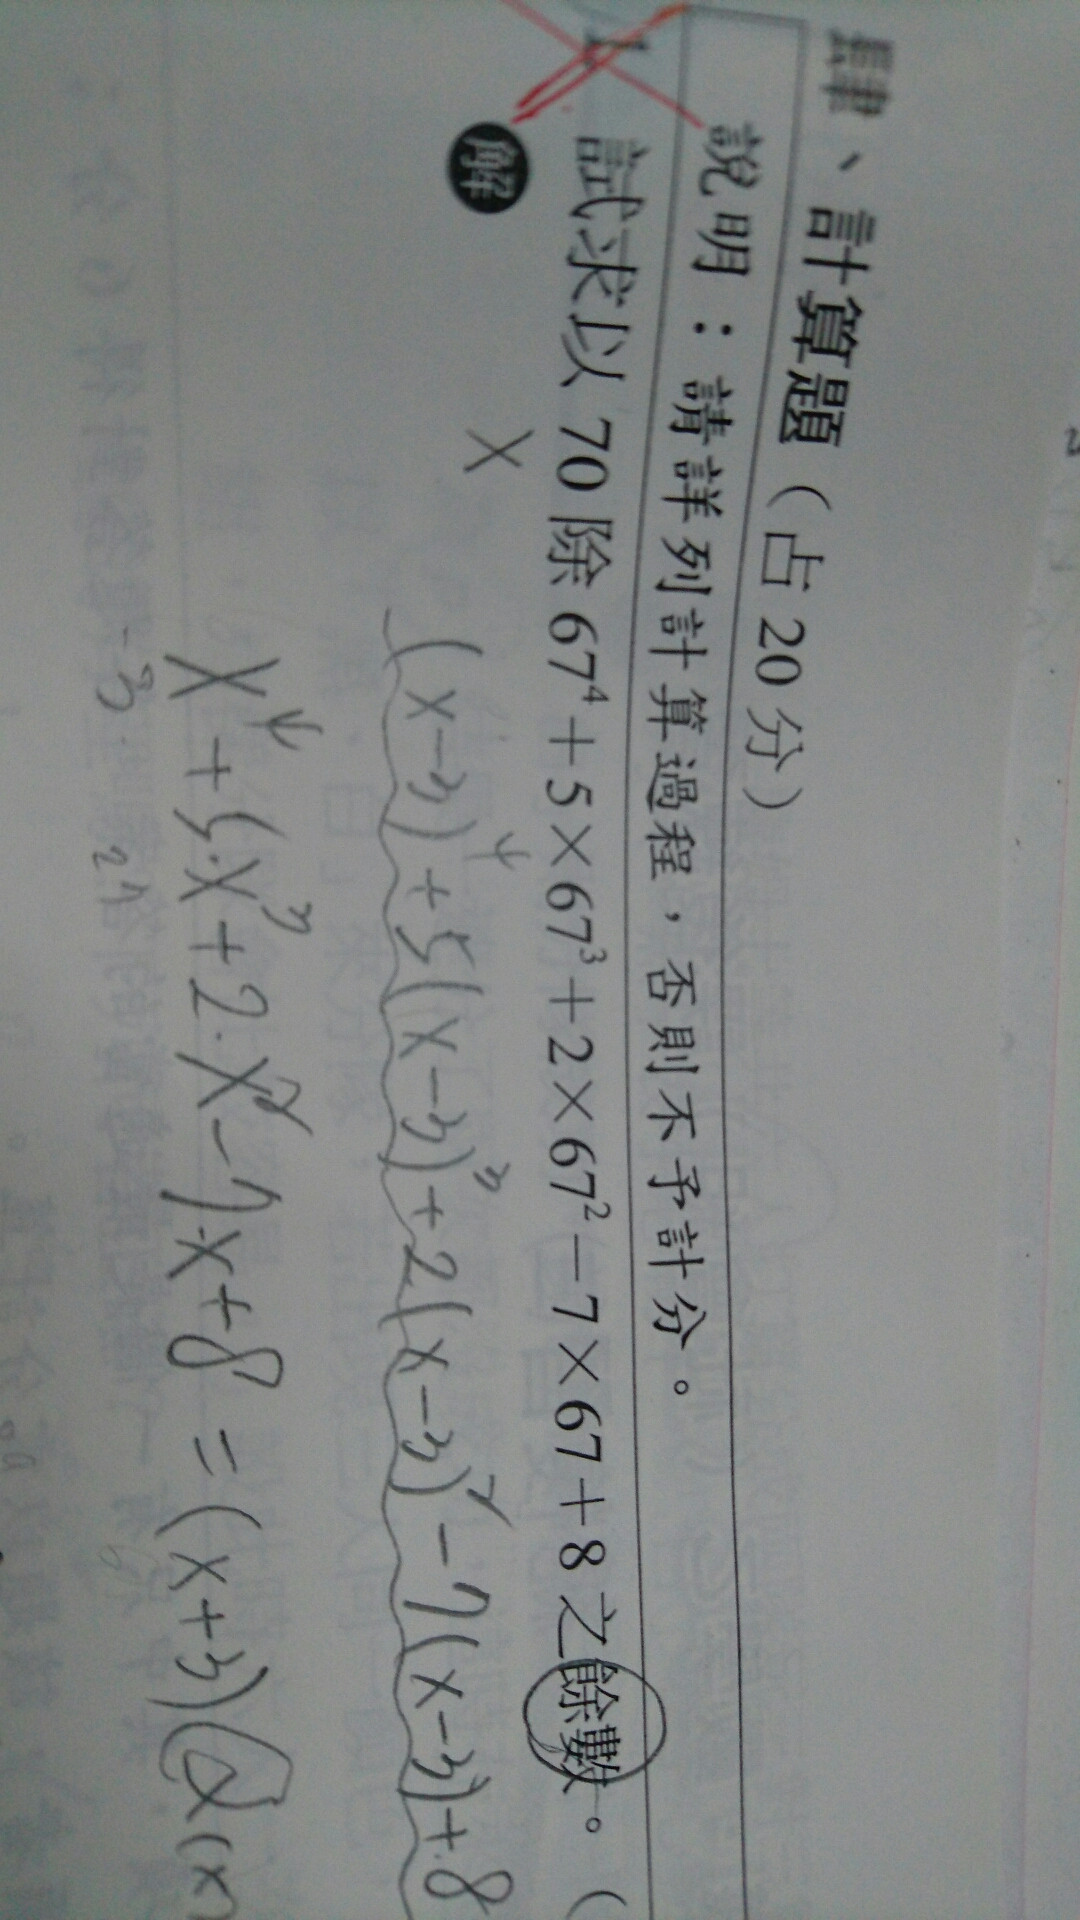 肆、計算題（占20分）
說明：請詳列計算過程，否則不予計分。
1.
試求以 70 除 67⁴＋5×67³＋2×67²－7×67＋8 之餘數。（
解
x
(x-3)⁴+5(x-3)³+2(x-3)²-7(x-3)+8
x⁴+5·x³+2·x²-7·x+8=(x+3)Q(x